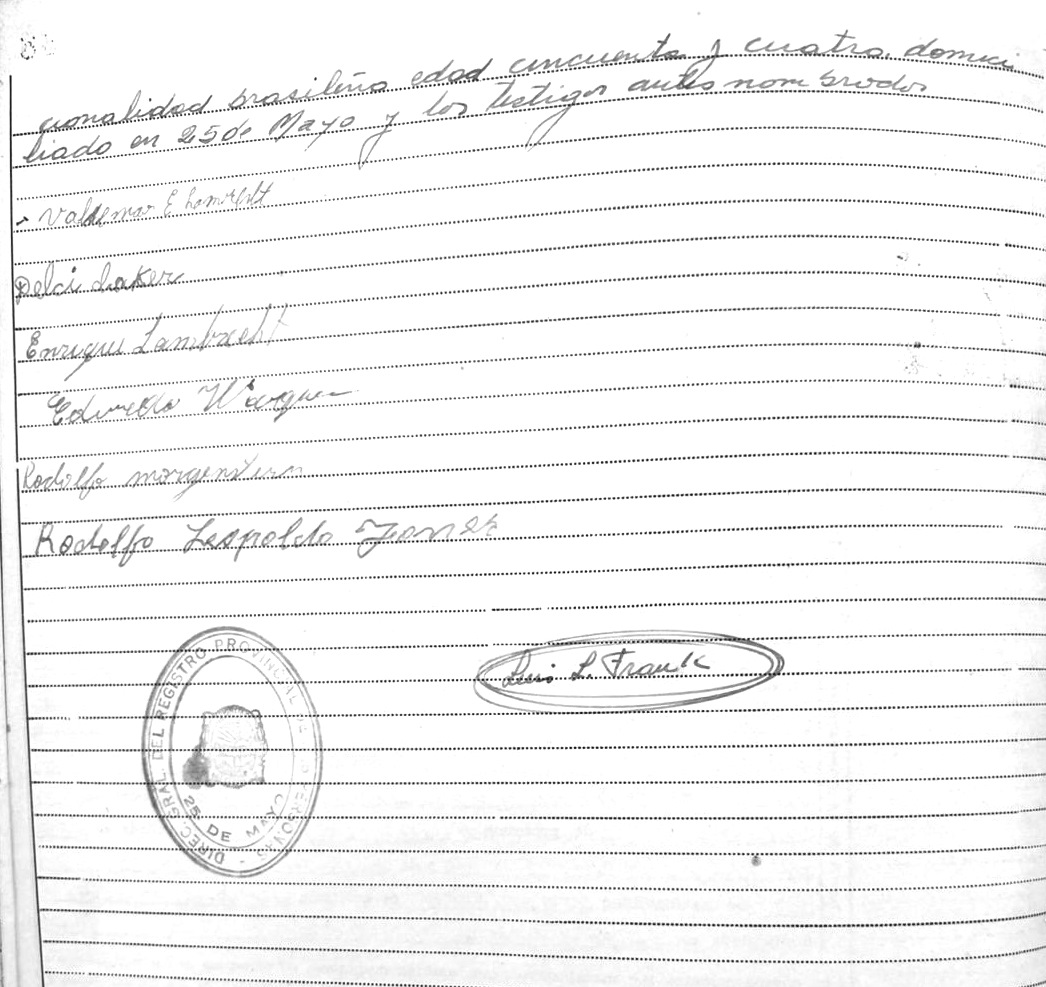 cionalidad brasileña edad cincuenta y cuatro domici
liado en 25 de Mayo y los testigos antes nombrados
Valdemar E Lambreht
Delci
Enrique Lambreht
Edvredo
Rodolfo morgenstern
Rodolfo Leopoldo
Luis L. Frank
DIREC. GRAL. DEL REGISTRO PROVINCIAL DE LAS PERSONAS
25 DE MAYO